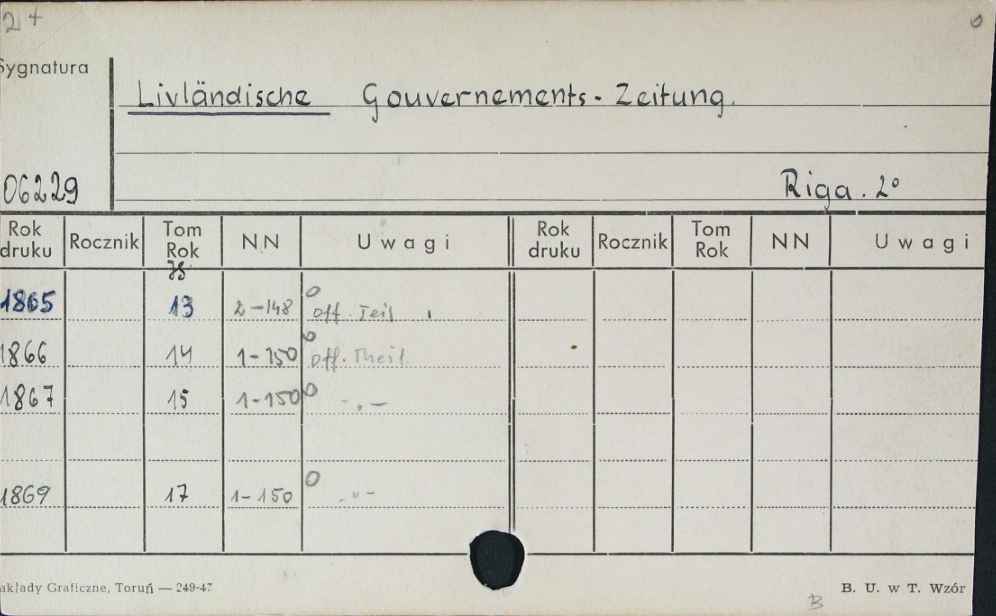 2 +
o
Sygnatura
Livländische Gouvernements-Zeitung.
06229
Riga. 2°
Rok druku Rocznik Tom Rok NN Uwagi Rok druku Rocznik Tom Rok NN Uwagi
1865 13 2-148 o Off. Teil
1866 14 1-150 o Off. Theil
1867 15 1-150 o -„-
1869 17 1-150 o -"-
akłady Graficzne, Toruń — 249-47
B. U. w T. Wzór
B